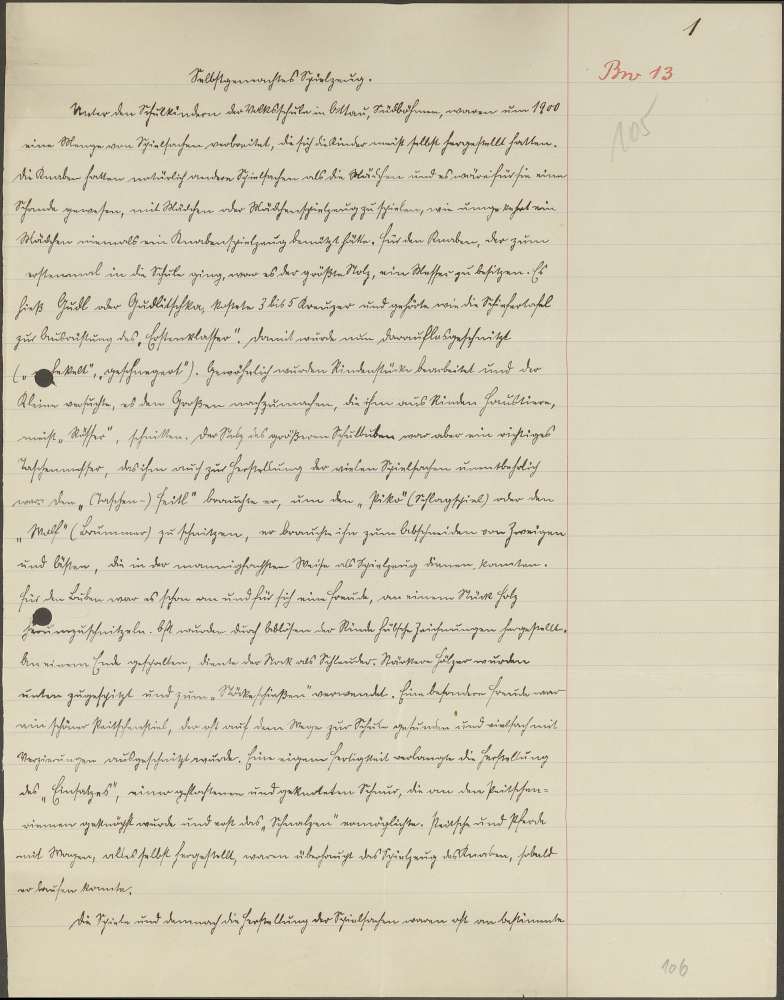 1
Bw 13
105
Selbstgemachtes Spielzeug.
Unter den Schulkindern der Volksschule in Ottau, Südböhmen, waren um 1900
eine Menge von Spielsachen verbreitet, die sich die Kinder meist selbst hergestellt hatten.
Die Knaben hatten natürlich andere Spielsachen als die Mädchen und es wäre für sie eine
Schande gewesen, mit Mädchen oder Mädchenspielzeug zu spielen, wie umgekehrt ein
Mädchen niemals ein Knabenspielzeug benützt hätte. Für den Knaben, der zum
erstenmal in die Schule ging, war es der größte Stolz, ein Messer zu besitzen. Es
hieß Gudl oder Gudlitschka, kostete 3 bis 5 Kreuzer und gehörte wie die Schiefertafel
zur Ausrüstung des „Erstenklasser". Damit wurde nun darauflosgeschnitzt
„geschnegert"). Gewöhnlich wurden Rindenstücke bearbeitet und der
Kleine versuchte, es den Großen nachzumachen, die ihm aus Rinden Haustiere,
meist „Rösser", schnitten. Der Stolz des größeren Schulbuben war aber ein richtiges
Taschenmesser, das ihm auch zur Herstellung der vielen Spielsachen unentbehrlich
war. Den „(Taschen-) Feitl" brauchte er, um den „Piko" (Schlagspiel) oder den
„Wolf" (Brummer) zu schnitzen, er brauchte ihn zum Abschneiden von Zweigen
und Ästen, die in der mannigfachsten Weise als Spielzeug dienen konnten.
Für den Buben war es schon an und für sich eine Freude, an einem Stück Holz
herumzuschnitzeln. Oft wurden durch Ablösen der Rinde hübsche Zeichnungen hergestellt.
An einem Ende gespalten, diente der Stock als Schleuder. Stärkere Hölzer wurden
unten zugespitzt und zum „Stöckeschießen" verwendet. Eine besondere Freude war
ein schöner Peitschenstiel, der oft auf dem Wege zur Schule gefunden und vielfach mit
Verzierungen ausgeschnitzt wurde. Eine eigene Fertigkeit verlangte die Herstellung
des „Einsatzes", einer geflochtenen und geknoteten Schnur, die an den Peitschen-
riemen geknüpft wurde und erst das „Schnalzen" ermöglichte. Peitsche und Pferde
mit Wagen, alles selbst hergestellt, waren überhaupt das Spielzeug des Knaben, sobald
er laufen konnte.
Die Spiele und demnach die Herstellung der Spielsachen waren oft an bestimmte
106